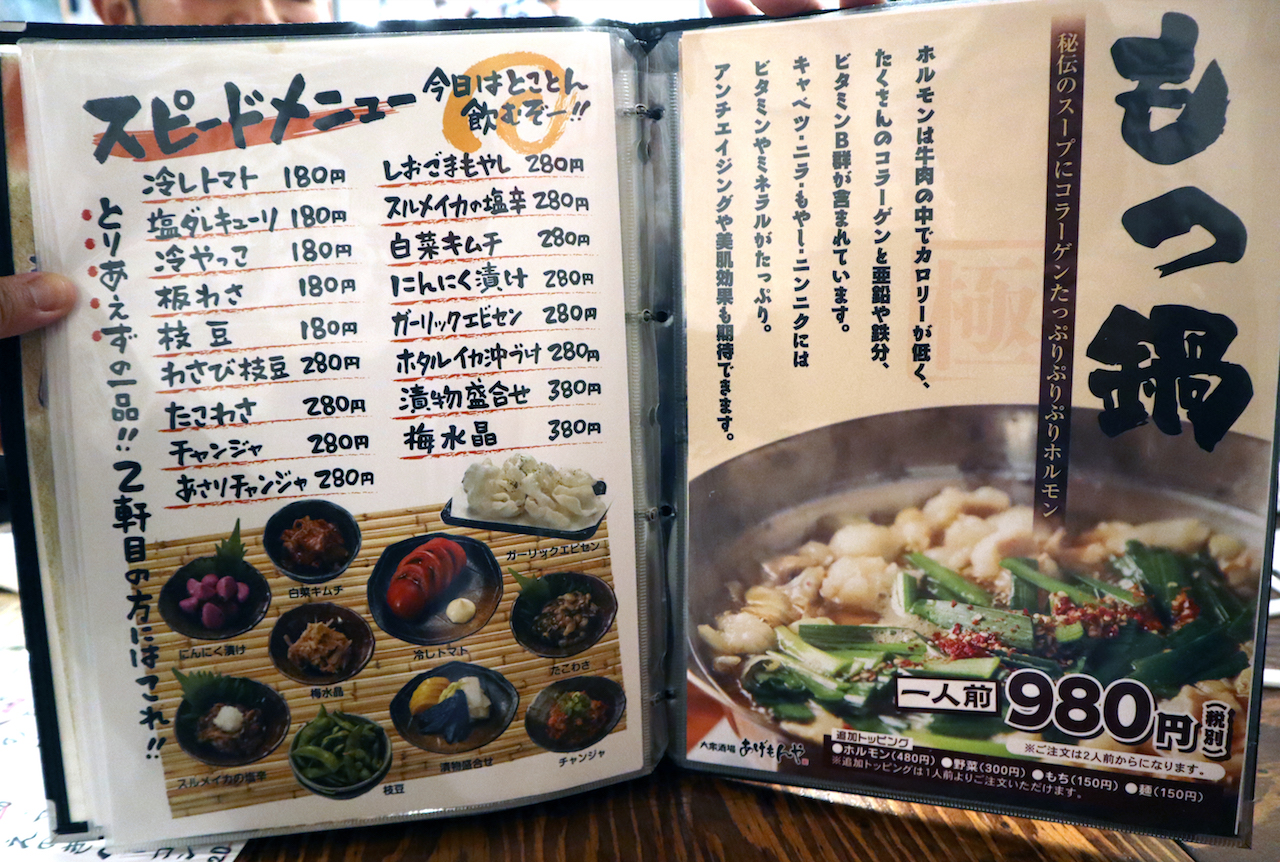 スピードメニュー
今日はとことん
飲むぞー!!
とりあえずの一品!!2軒目の方にはこれ!!
冷しトマト 180円
塩ダレキューリ 180円
冷やっこ 180円
板わさ 180円
枝豆 180円
わさび枝豆 280円
たこわさ 280円
チャンジャ 280円
あさりチャンジャ 280円
しおごまもやし 280円
スルメイカの塩辛 280円
白菜キムチ 280円
にんにく漬け 280円
ガーリックエビセン 280円
ホタルイカ沖づけ 280円
漬物盛合せ 380円
梅水晶 380円
ガーリックエビセン
白菜キムチ
にんにく漬け
冷しトマト
たこわさ
梅水晶
スルメイカの塩辛
枝豆
漬物盛合せ
チャンジャ
もつ鍋
秘伝のスープにコラーゲンたっぷりぷりぷりホルモン
極
ホルモンは牛肉の中でカロリーが低く、
たくさんのコラーゲンと亜鉛や鉄分、
ビタミンB群が含まれています。
キャベツ・ニラ・もやし・ニンニクには
ビタミンやミネラルがたっぷり。
アンチエイジングや美肌効果も期待できます。
一人前 980円(税別)
※ご注文は2人前からになります。
大衆酒場 あげもんや
追加トッピング
●ホルモン(480円) ●野菜(300円) ●もち(150円) ●麺(150円)
※追加トッピングは1人前よりご注文いただけます。